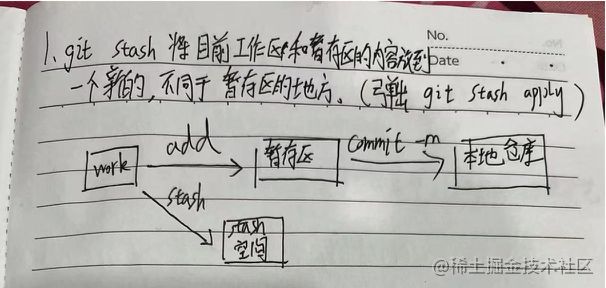 No.
Date
1. git stash 将目前工作区和暂存区的内容放到
一个新的,不同于暂存区的地方。(弹出 git stash apply)
work
add
暂存区
commit -m
本地仓库
stash
stash
空间
@稀土掘金技术社区